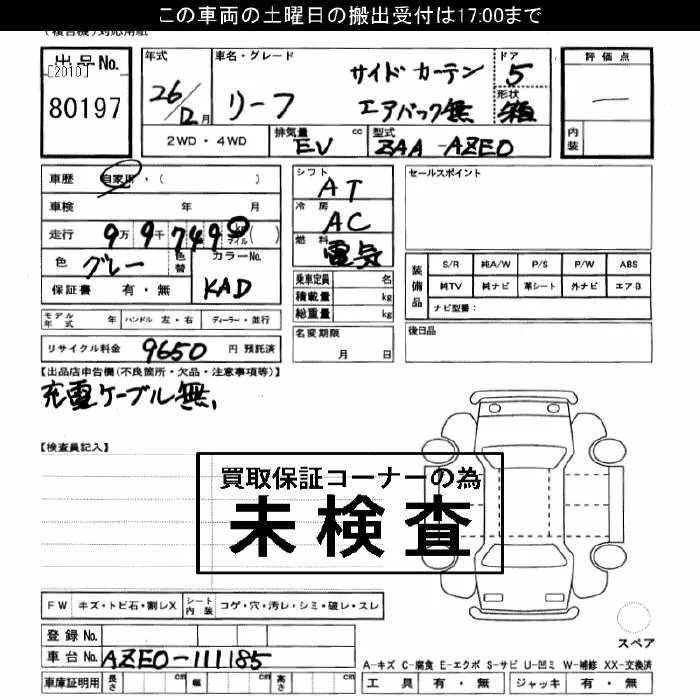 この車両の土曜日の搬出受付は17:00まで
(複合機)対応用紙
出品No.
[2010]
80197
年式
26/12月
車名・グレード
リーフ
サイドカーテン
エアバック無
ドア
5
形状
箱
評価点
—
内装
2WD・4WD
排気量
EV
cc
型式
ZAA-AZE0
車歴
自家用・( )
車検 年 月
走行 9万9千749 km マイル( )
色 グレー
色替
カラーNo.
KAD
保証書 有・無
シフト
AT
冷房
AC
燃料
電気
セールスポイント
乗車定員 名
積載量 kg
総重量 kg
装備品
S/R 純A/W P/S P/W ABS
純TV 純ナビ 革シート 外ナビ エアB
ナビ型番:
モデル年式 年 ハンドル 左・右 ディーラー・並行
名変期限
月 日
後日品
リサイクル料金 9650 円 預託済
【出品店申告欄(不良箇所・欠品・注意事項等)】
充電ケーブル無,
【検査員記入】
買取保証コーナーの為
未検査
FW キズ・トビ石・割レX シート内装 コゲ・穴・汚レ・シミ・破レ・スレ
登録No.
車台No. AZE0-111185
スペア
A-キズ C-腐食 E-エクボ S-サビ U-凹ミ W-補修 XX-交換済
車庫証明用 長さ cm 幅 cm 高さ cm
工具 有・無 ジャッキ 有・無